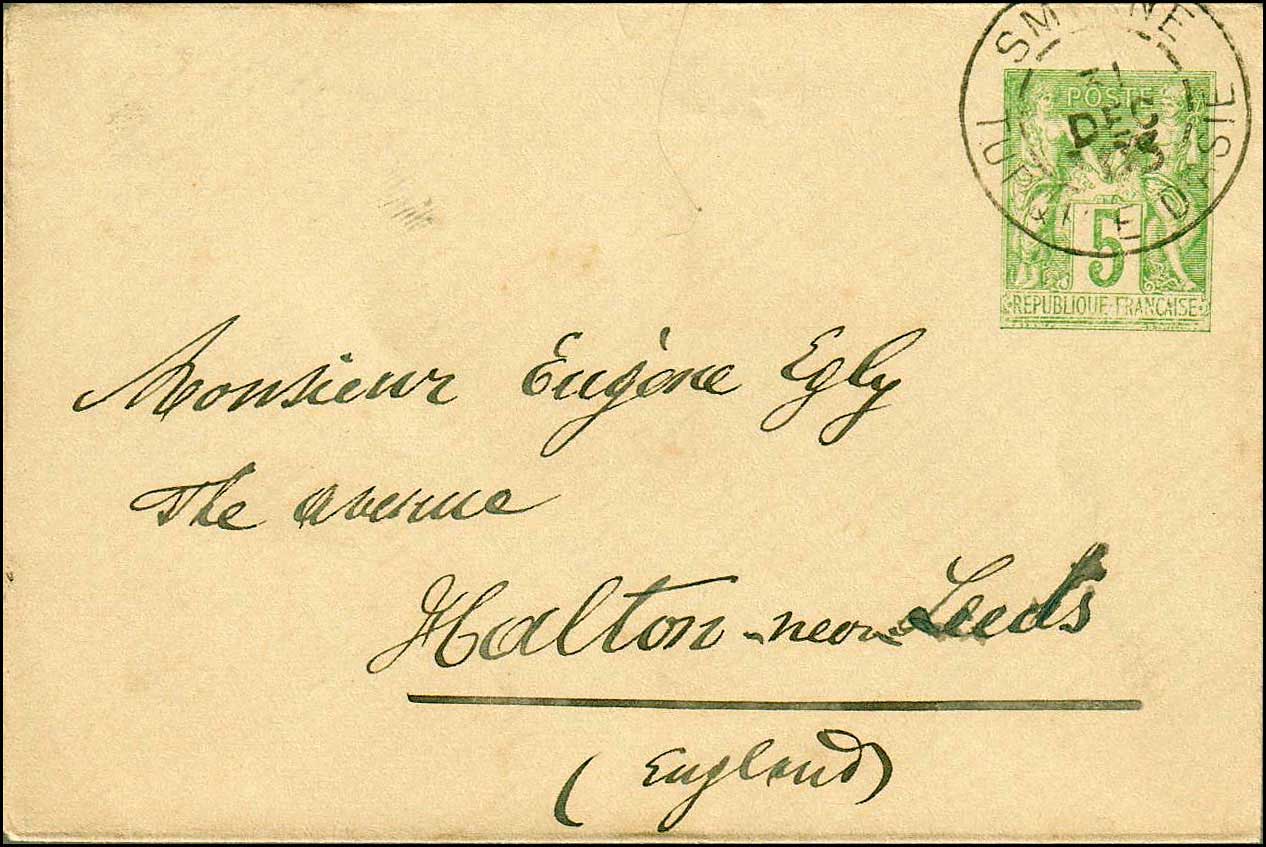 SMYRNE
DEC
TURQUIE D'ASIE
POSTE
5
REPUBLIQUE FRANÇAISE
Monsieur Eugène Egly
The avenue
Halton near Leeds
(England)